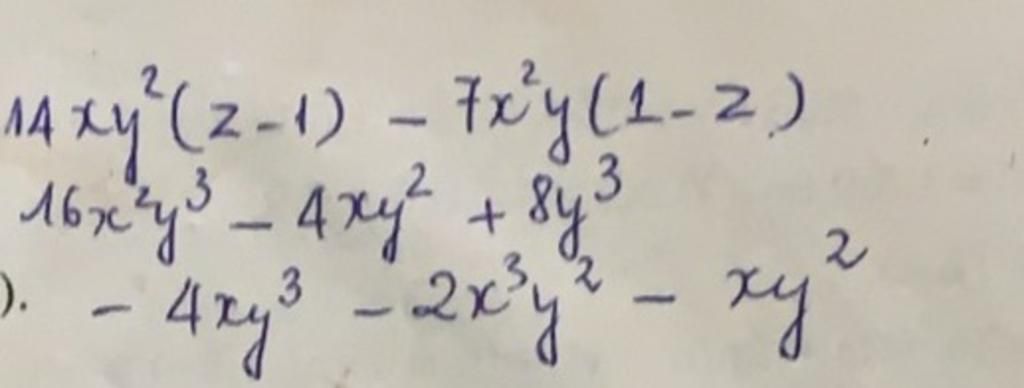 14xy²(z-1) - 7x²y(1-z)
16x²y³ - 4xy² + 8y³
). - 4xy³ - 2x³y² - xy²